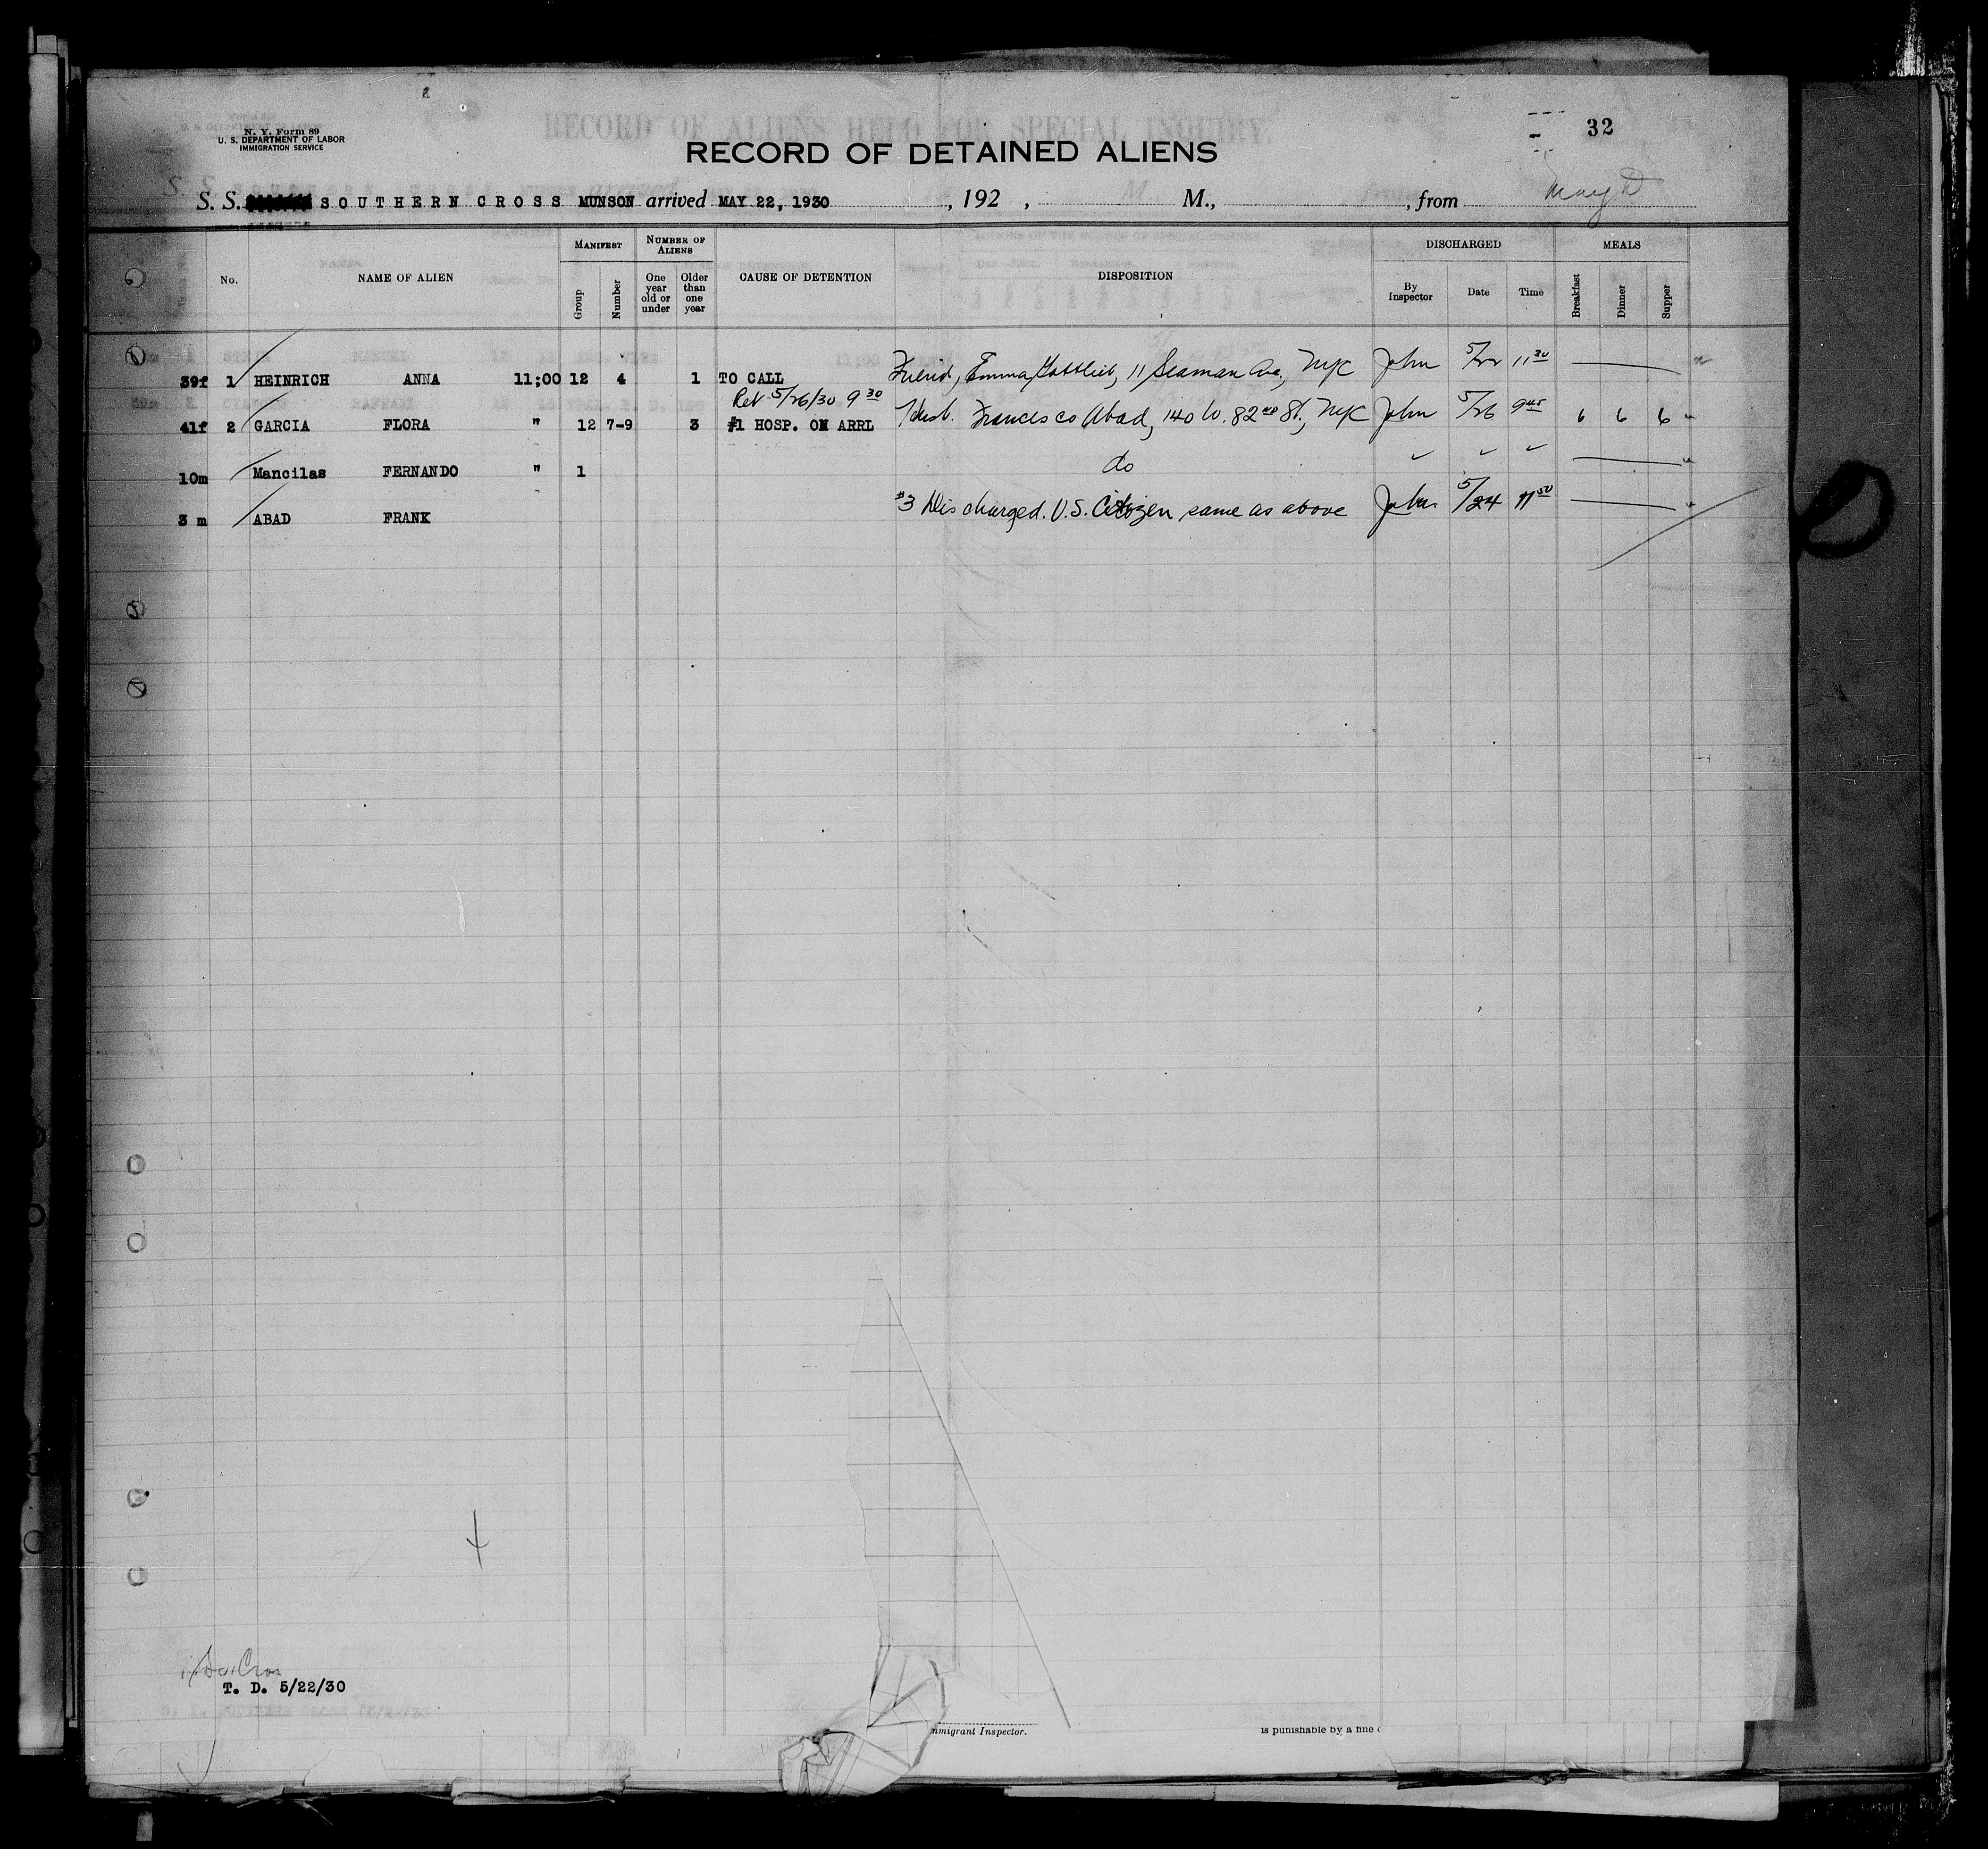 N. Y. Form 89
U. S. DEPARTMENT OF LABOR
IMMIGRATION SERVICE
32
RECORD OF ALIENS HELD FOR SPECIAL INQUIRY.
RECORD OF DETAINED ALIENS
S. S. SOUTHERN CROSS MUNSON arrived MAY 22, 1930, 192 , M., , from
No. NAME OF ALIEN MANIFEST Group Number NUMBER OF ALIENS One year old or under Older than one year CAUSE OF DETENTION DISPOSITION DISCHARGED By Inspector Date Time MEALS Breakfast Dinner Supper
39f 1 HEINRICH ANNA 11;00 12 4 1 TO CALL Friend, Emma Gottlieb, 11 Seaman Ave., NYC John 5/22 11 30
Ret 5/26/30 9 30
41f 2 GARCIA FLORA " 12 7-9 3 #1 HOSP. ON ARRL Husb. Francesco Abad, 140 W. 82nd St., NYC John 5/26 9 45 6 6 6
10m Mancilas FERNANDO " 1 do
3 m ABAD FRANK #3 Discharged. U.S. Citizen same as above John 5/24 11 50
T. D. 5/22/30
mmigrant Inspector.
is punishable by a fine